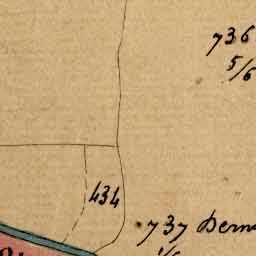 736
5/6
434
737 Dern
1/6